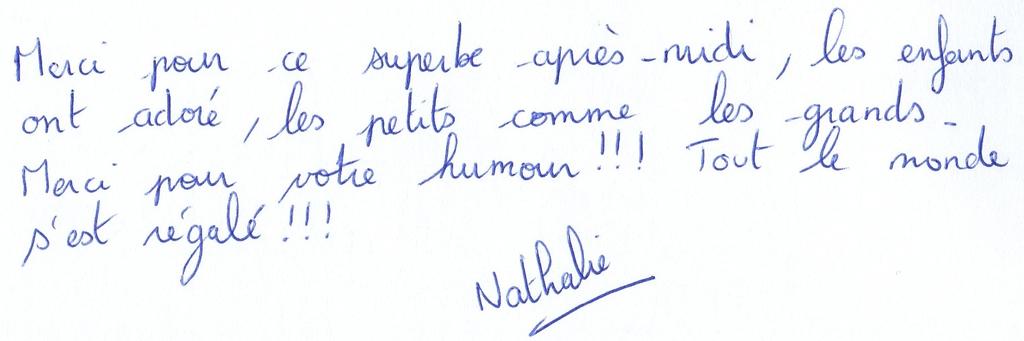 Merci pour ce superbe après-midi, les enfants
ont adoré, les petits comme les grands.
Merci pour votre humour!!! Tout le monde
s'est régalé!!!
Nathalie